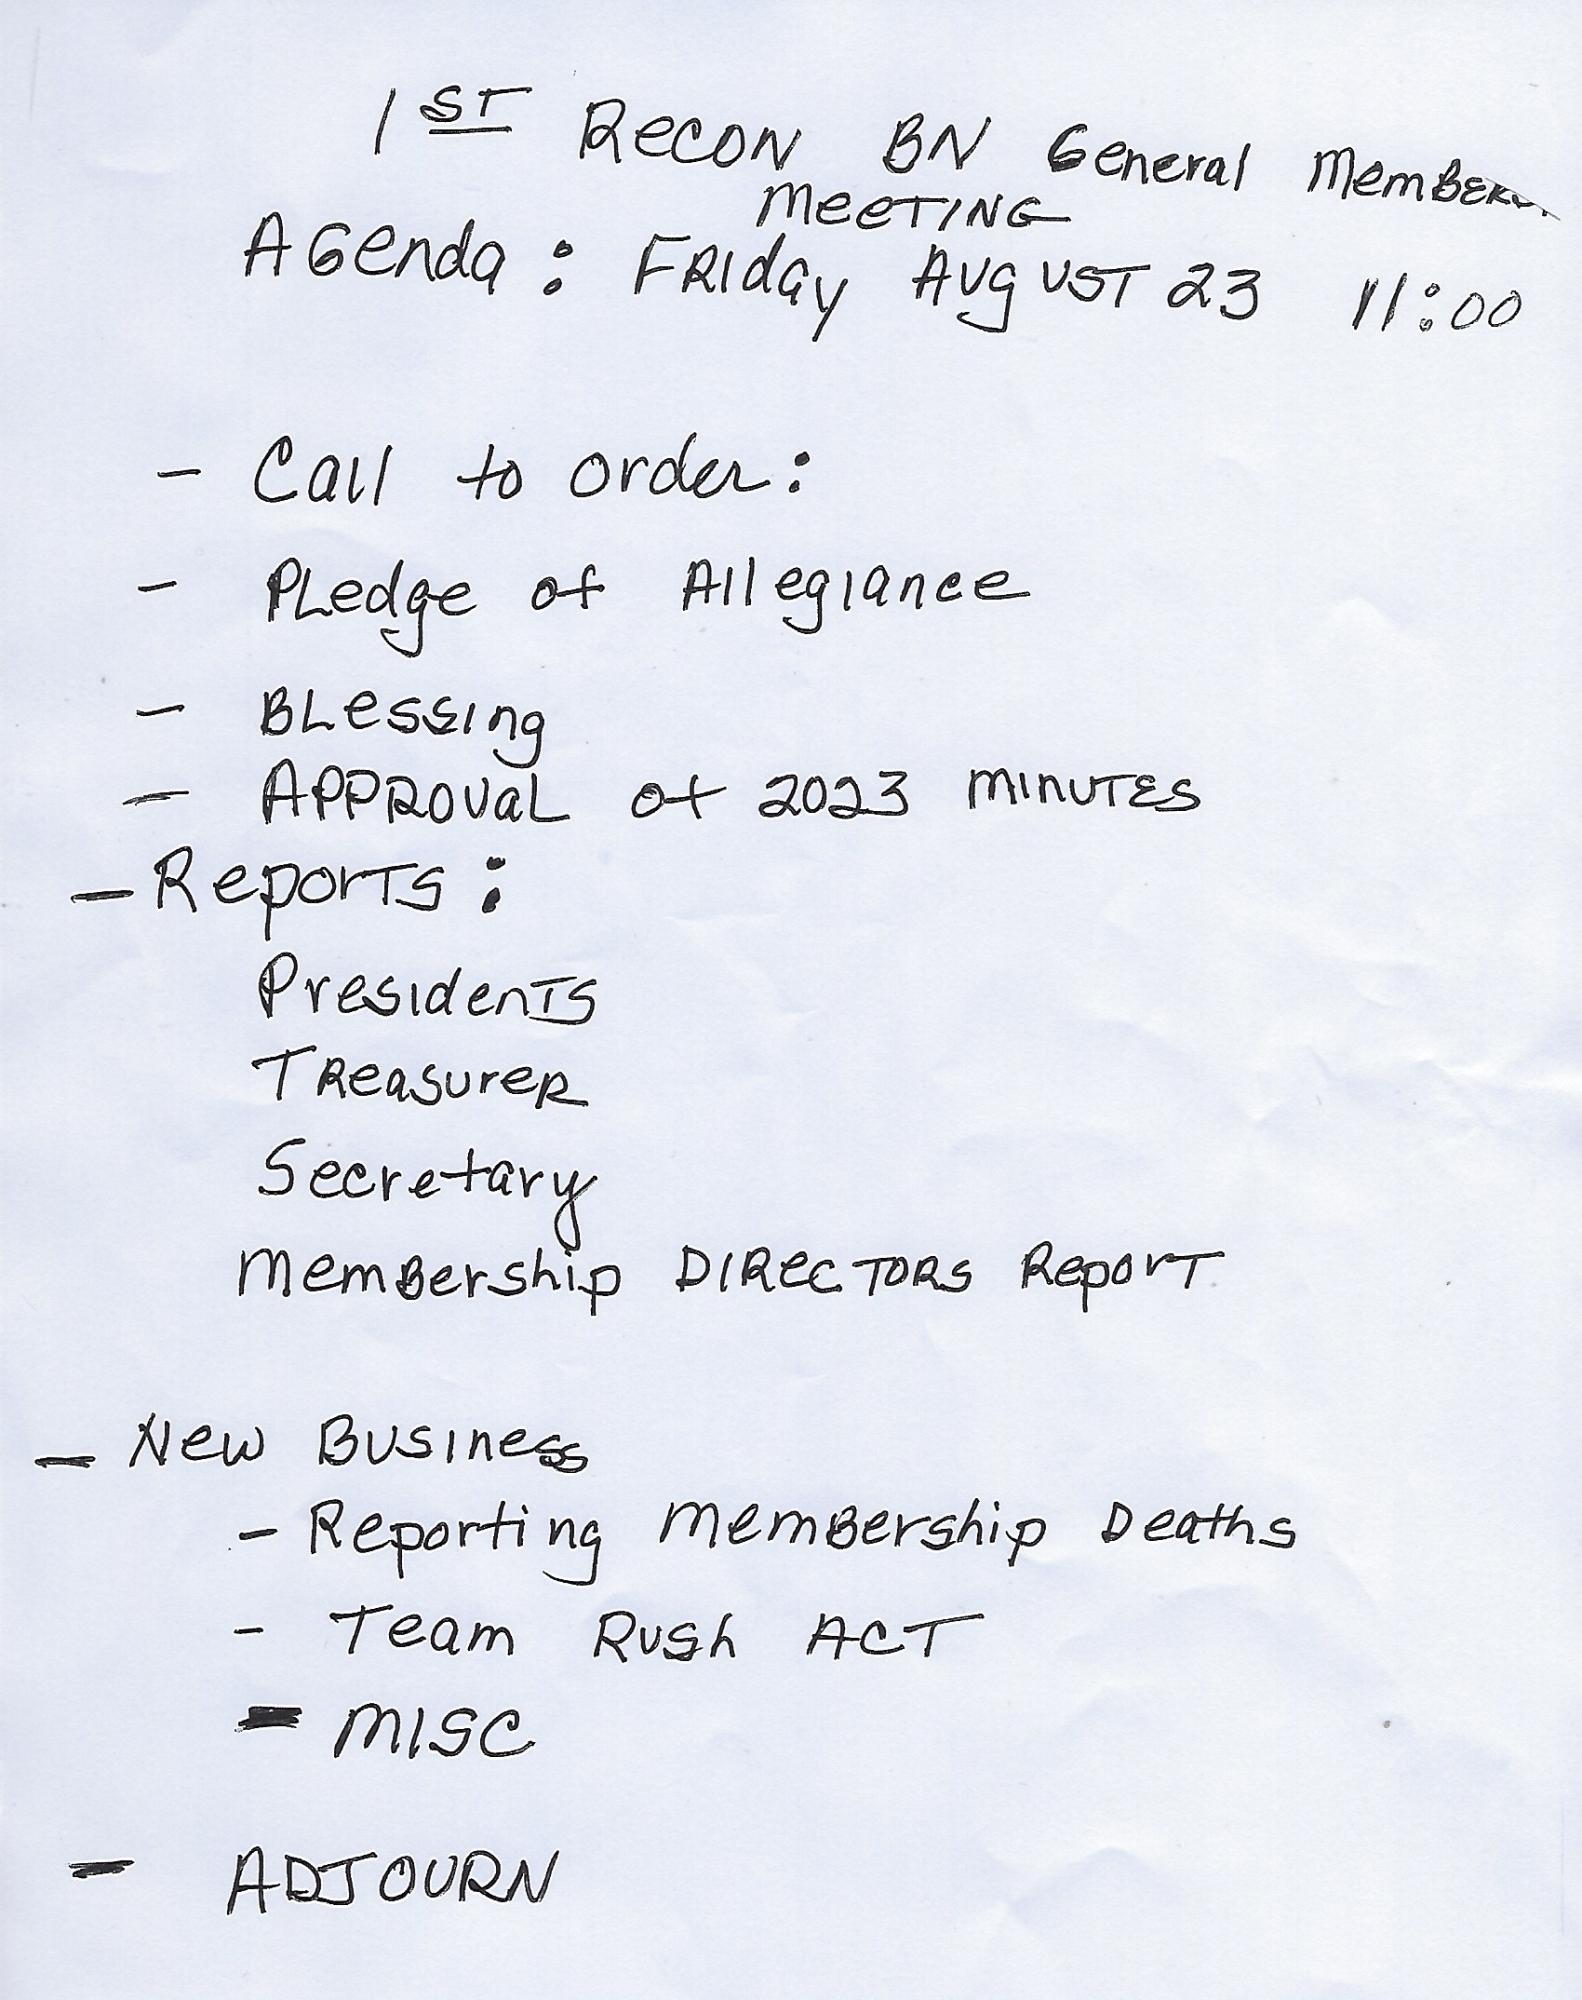 1ST Recon BN General Member
Meeting
Agenda: Friday August 23 11:00
- Call to order:
- Pledge of Allegiance
- Blessing
- Approval of 2023 minutes
- Reports:
Presidents
Treasurer
Secretary
Membership Directors Report
- New Business
- Reporting Membership Deaths
- Team Rush Act
- Misc
- ADJOURN